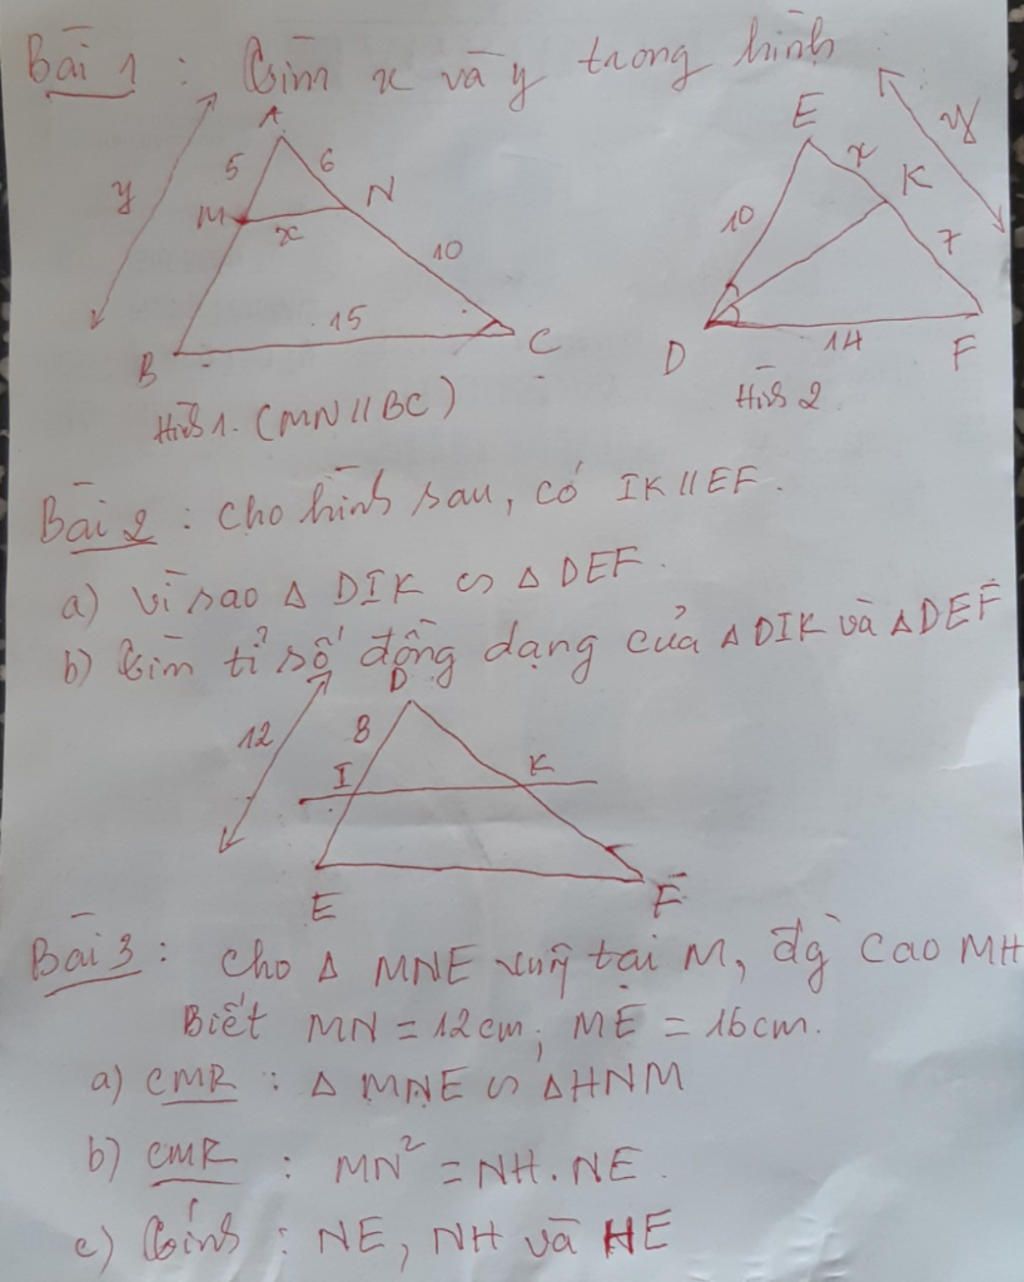 Bài 1 : Tìm x và y trong hình
A
E
5
6
x
y
y
M
N
K
x
10
10
7
15
14
B
C
D
F
Hình 1. (MN // BC)
Hình 2
Bài 2 : Cho hình sau, có IK // EF.
a) Vì sao Δ DIK ∽ Δ DEF.
b) Tìm tỉ số đồng dạng của Δ DIK và Δ DEF
D
12
8
I
K
E
F
Bài 3 : Cho Δ MNE vuông tại M, đg cao MH
Biết MN = 12cm; ME = 16cm.
a) CMR : Δ MNE ∽ Δ HNM
b) CMR : MN² = NH . NE.
c) Tính : NE, NH và HE